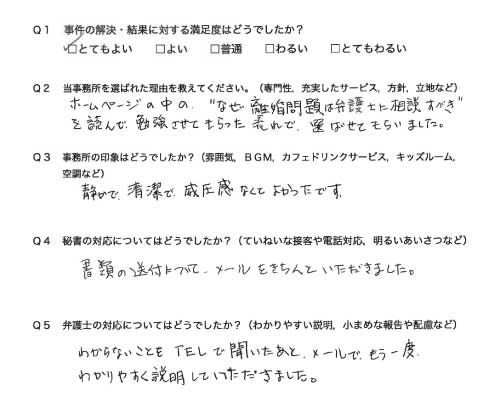 Q1 事件の解決・結果に対する満足度はどうでしたか?
☑とてもよい □よい □普通 □わるい □とてもわるい
Q2 当事務所を選ばれた理由を教えてください。(専門性,充実したサービス,方針,立地など)
ホームページの中の、"なぜ離婚問題は弁護士に相談すべき"
を読んで、勉強させてもらった流れで、選ばせてもらいました。
Q3 事務所の印象はどうでしたか?(雰囲気,BGM,カフェドリンクサービス,キッズルーム,
空調など)
静かで、清潔で、威圧感なくてよかったです。
Q4 秘書の対応についてはどうでしたか?(ていねいな接客や電話対応,明るいあいさつなど)
書類の送付について、メールをきちんといただきました。
Q5 弁護士の対応についてはどうでしたか?(わかりやすい説明,小まめな報告や配慮など)
わからないことをTELで聞いたあと、メールで、もう一度、
わかりやすく説明していただきました。